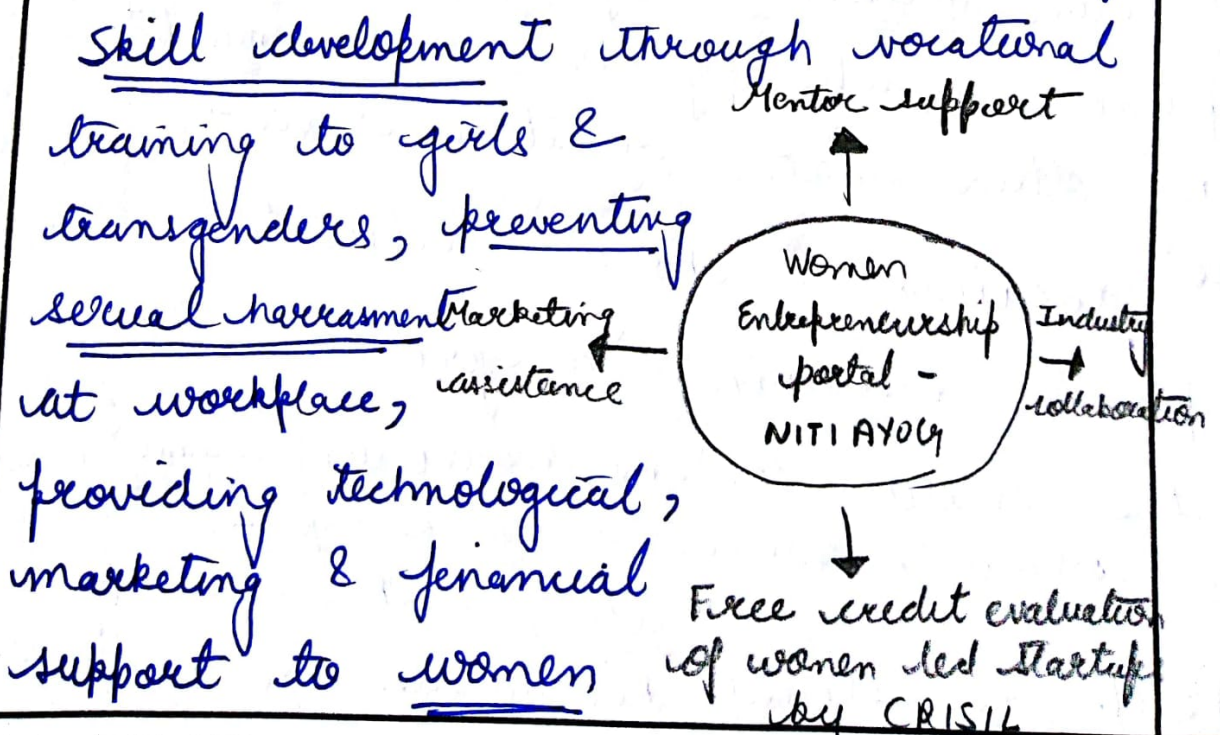 Skill development through vocational
training to girls &
transgenders, preventing
sexual harrasment
at workplace,
providing technological,
marketing & financial
support to women
Mentor support
Marketing
assistance
Women
Entrepreneurship
portal -
NITI AYOG
Industry
collaboration
Free credit evaluation
of women led Startups
by CRISIL